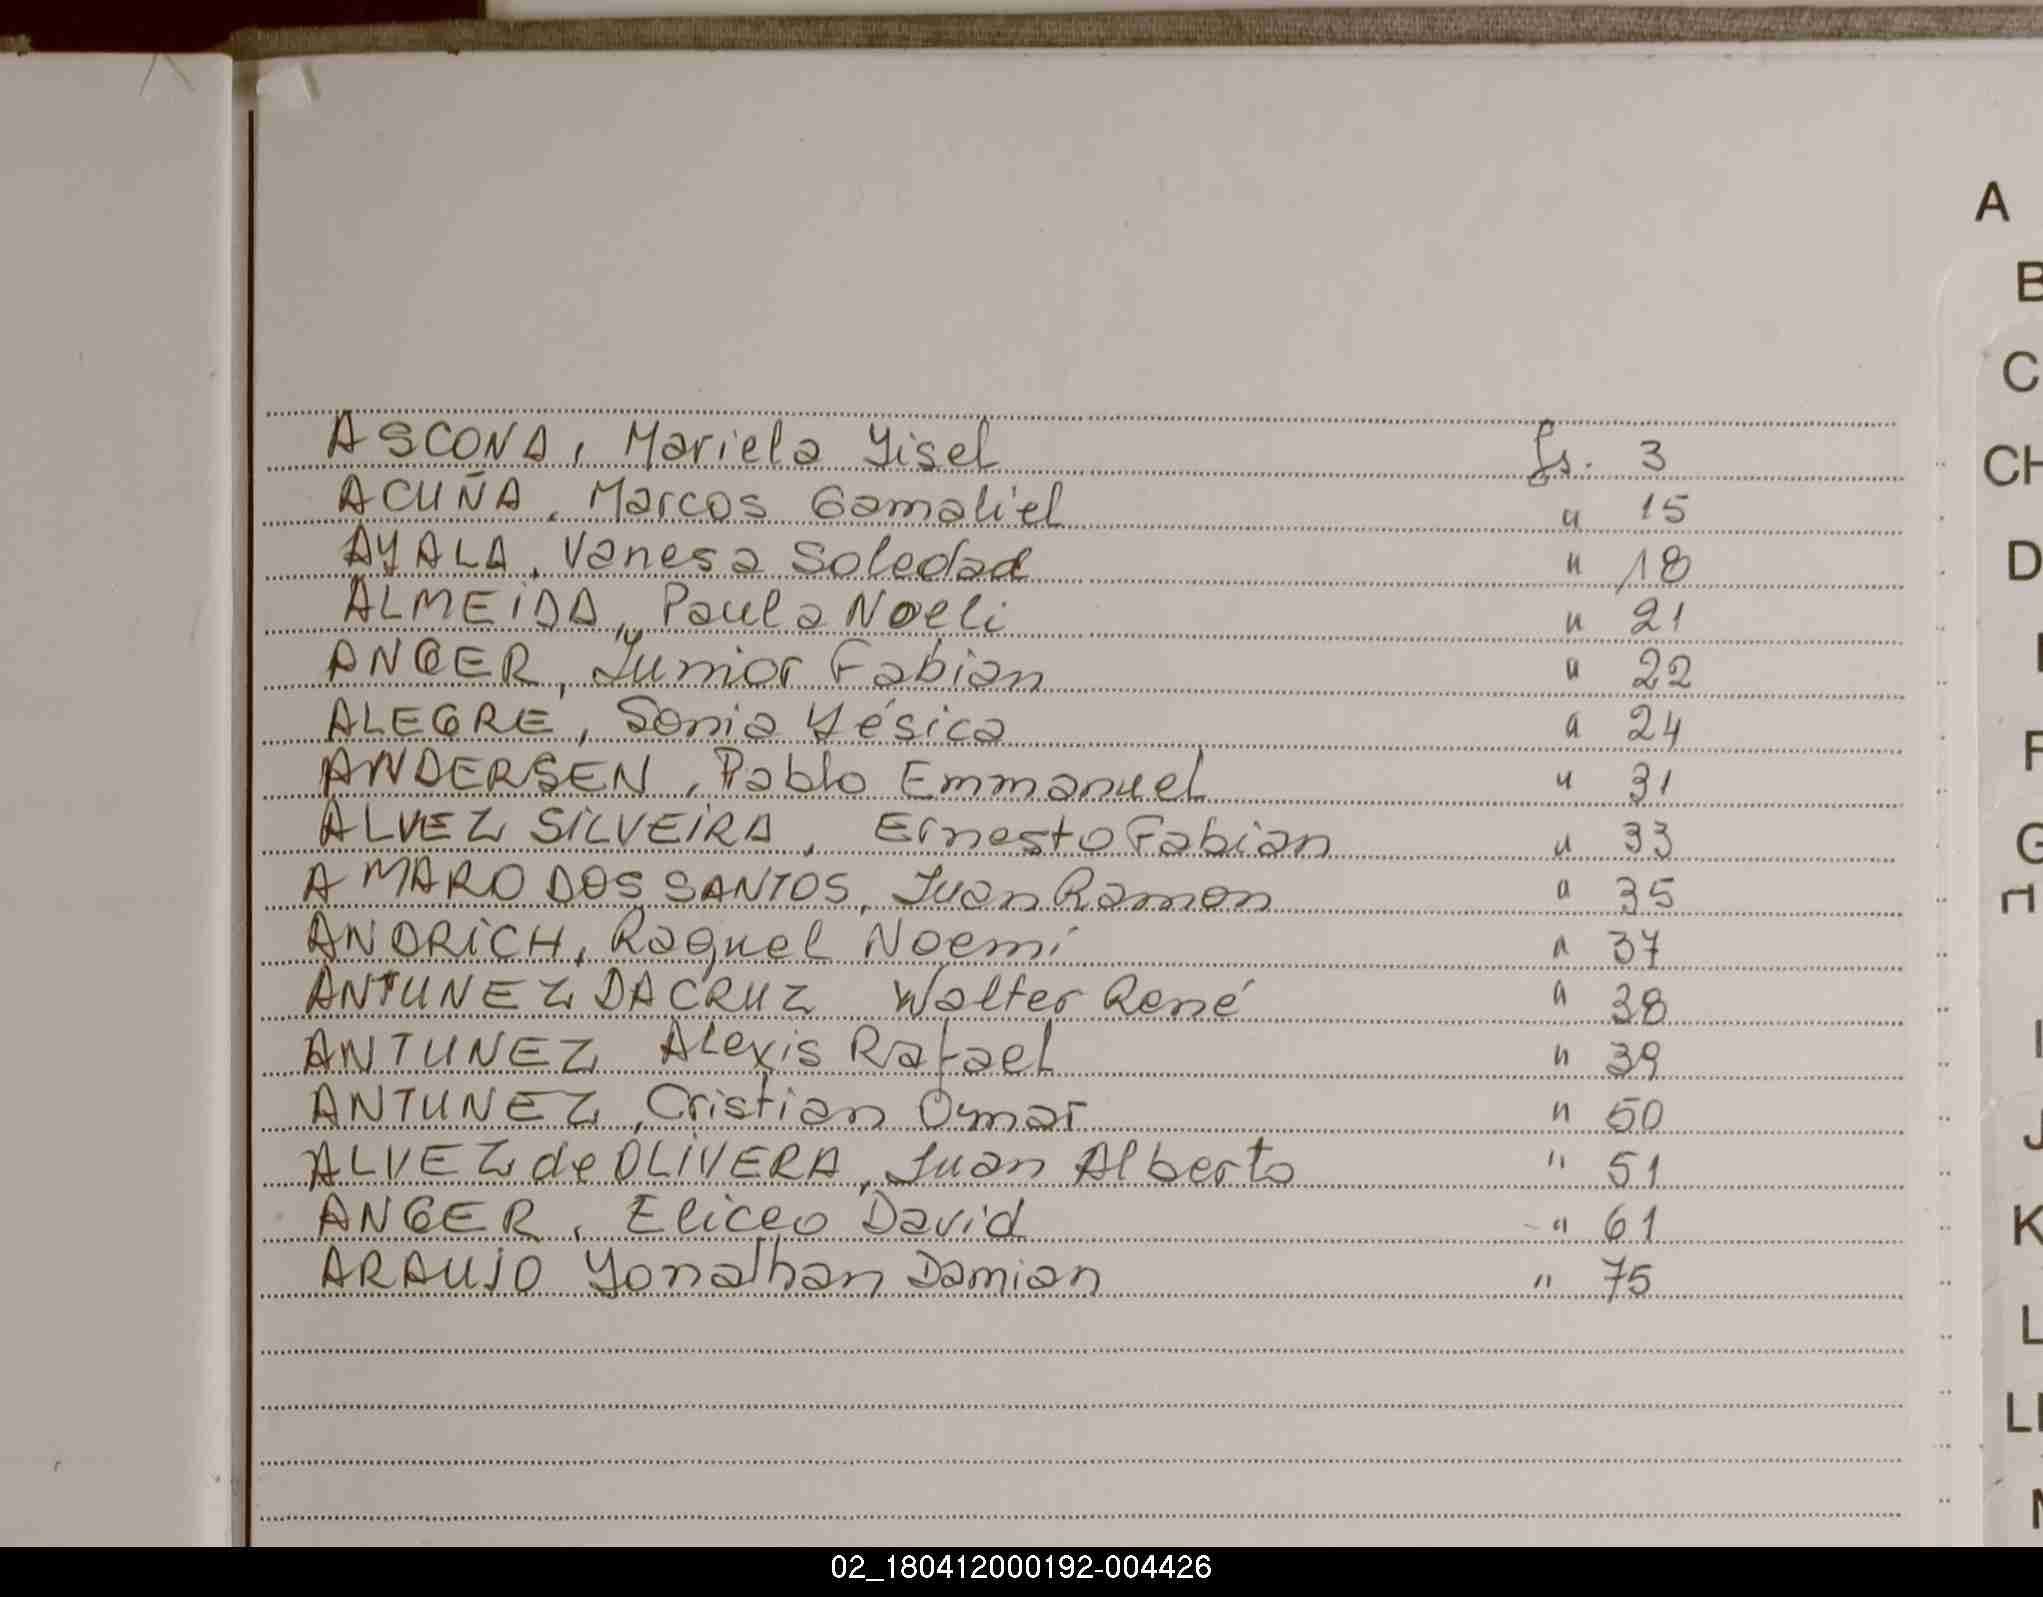 A
B
C
CH
D
ASCONA, Mariela Yisel fs. 3
ACUÑA, Marcos Gamaliel " 15
AYALA, Vanesa Soledad " 18
ALMEIDA, Paula Noeli " 21
ANGER, Junior Fabian " 22
ALEGRE, Sonia Yésica " 24
ANDERSEN, Pablo Emmanuel " 31
ALVEZ SILVEIRA, Ernesto Fabian " 33
AMARO DOS SANTOS, Juan Ramon " 35
ANDRICH, Raquel Noemi " 37
ANTUNEZ DACRUZ Walter René " 38
ANTUNEZ Alexis Rafael " 39
ANTUNEZ, Cristian Omar " 50
ALVEZ de OLIVERA, Juan Alberto " 51
ANGER, Eliceo David " 61
ARAUJO Yonathan Damian " 75
F
G
I
J
K
L
02_180412000192-004426